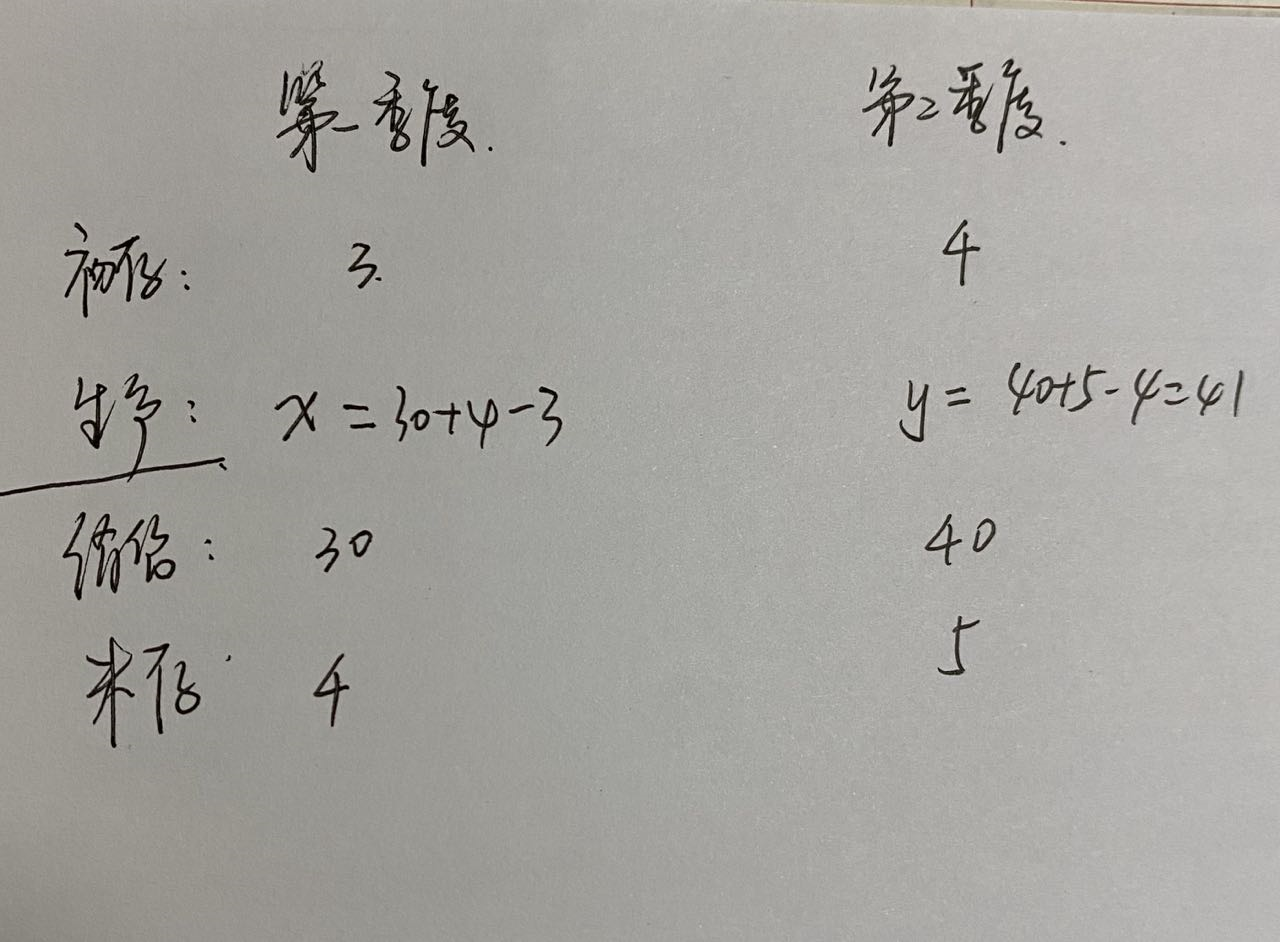 第一季度. 第二季度.
初存: 3. 4
生产: x = 30+4-3 y = 40+5-4=41
销售: 30 40
末存: 4 5